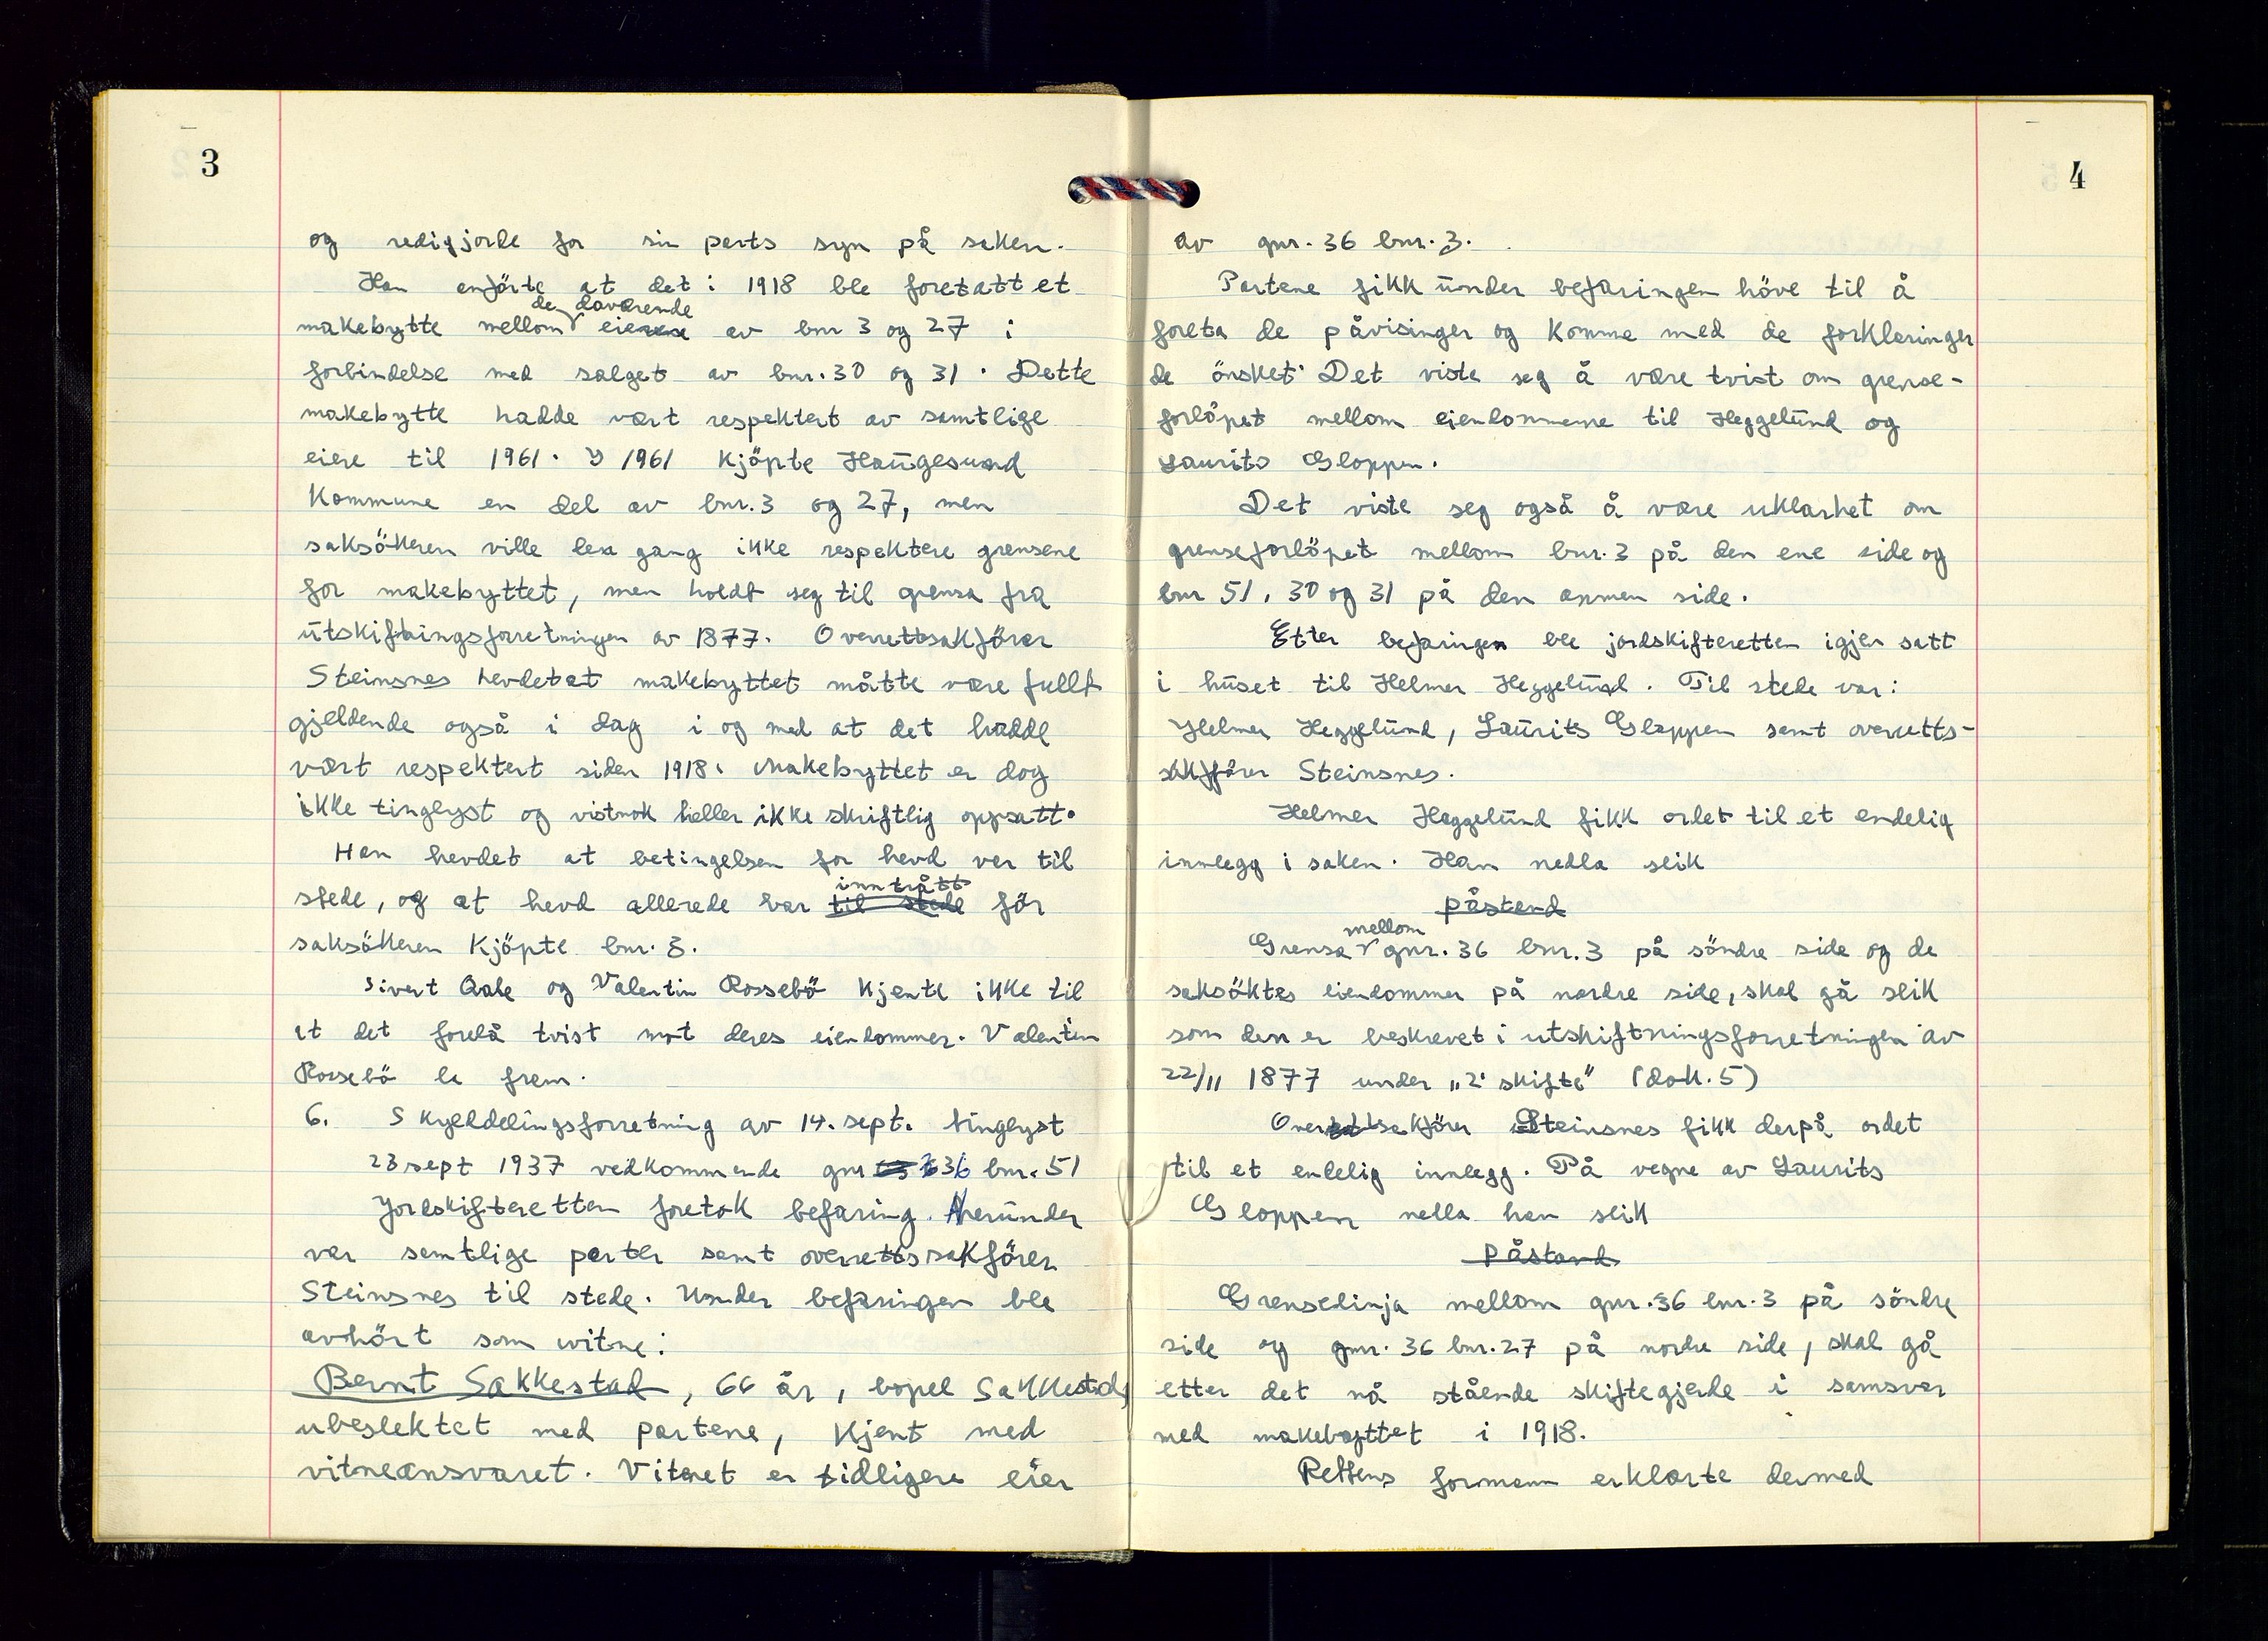 3
og redigjorde for sin parts syn på saken.
Han anförte at det i 1918 ble foretatt et
de daværende
makebytte mellom eierne av bnr 3 og 27 i
forbindelse med salget av bnr. 30 og 31. Dette
makebytte hadde vært respektert av samtlige
eiere til 1961. I 1961 kjöpte Haugesund
Kommune en del av bnr. 3 og 27, men
saksökeren ville den gang ikke respektere grensene
for makebyttet, men holdt seg til grensa fra
utskiftningsforretningen av 1877. Overrettsakförer
Steinsnes hevdet at makebyttet måtte være fullt
gjeldende også i dag i og med at det hadde
vært respektert siden 1918. Makebyttet er dog
ikke tinglyst og vistnok heller ikke skriftlig oppsatt.
Han hevdet at betingelsen for hevd var til
inntrått
stede, og at hevd allerede var til stede för
saksökeren kjöpte bnr. 3.
Sivert Aabe og Valentin Rossebö kjente ikke til
at det forelå tvist mot deres eiendommer. Valentin
Rossebö la frem.
6. Skylddelingsforretning av 14. sept. tinglyst
23 sept 1937 vedkommende gnr 36 bnr. 51
Jordskifteretten foretok befaring. Herunder
var samtlige parter samt overrettssakförer
Steinsnes til stede. Under befaringen ble
avhört som vitne:
Bernt Sakkestad, 66 år, bopel Sakkestad,
ubeslektet med partene, kjent med
vitneansvaret. Vitnet er tidligere eier
4
av gnr. 36 bnr. 3.
Partene fikk under befaringen höve til å
foreta de påvisinger og komme med de forklaringer
de önsket. Det viste seg å være tvist om grense-
forlöpet mellom eiendommene til Heggelund og
Laurits Gloppen.
Det viste seg også å være uklarhet om
grenseforlöpet mellom bnr. 3 på den ene side og
bnr 51, 30 og 31 på den annen side.
Etter befaringen ble jordskifteretten igjen satt
i huset til Helmer Heggelund. Til stede var:
Helmer Heggelund, Laurits Gloppen samt overretts-
sakförer Steinsnes.
Helmer Heggelund fikk ordet til et endelig
innlegg i saken. Han nedla slik
påstand
mellom
Grensa gnr. 36 bnr. 3 på söndre side og de
saksöktes eiendommer på nordre side, skal gå slik
som den er beskrevet i utskiftningsforretningen av
22/11 1877 under „2' skifte" (dok. 5)
Overrettsakförer Steinsnes fikk derpå ordet
til et endelig innlegg. På vegne av Laurits
Gloppen nedla han slik
påstand
Grenselinja mellom gnr. 36 bnr. 3 på söndre
side og gnr. 36 bnr. 27 på nordre side, skal gå
etter det nå stående skiftegjerde i samsvar
med makebyttet i 1918.
Rettens formann erklærte dermed